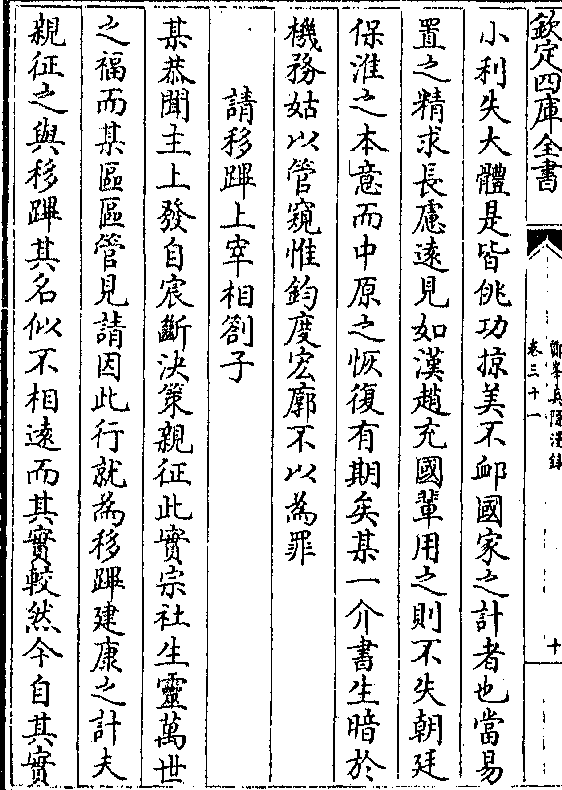 欽定四庫全書
鄮峯真隱漫録
卷三十一
十
小利失大體是皆佻功掠美不衈國家之計者也當易
置之精求長慮遠見如漢趙充國輩用之則不失朝廷
保淮之本意而中原之恢復有期矣某一介書生暗於
機務姑以管窺惟鈞度宏廓不以為罪
請移蹕上宰相劄子
某恭聞主上發自宸斷決策親征此實宗社生靈萬世
之福而某區區管見請因此行就為移蹕建康之計夫
親征之與移蹕其名似不相遠而其實較然今自其實